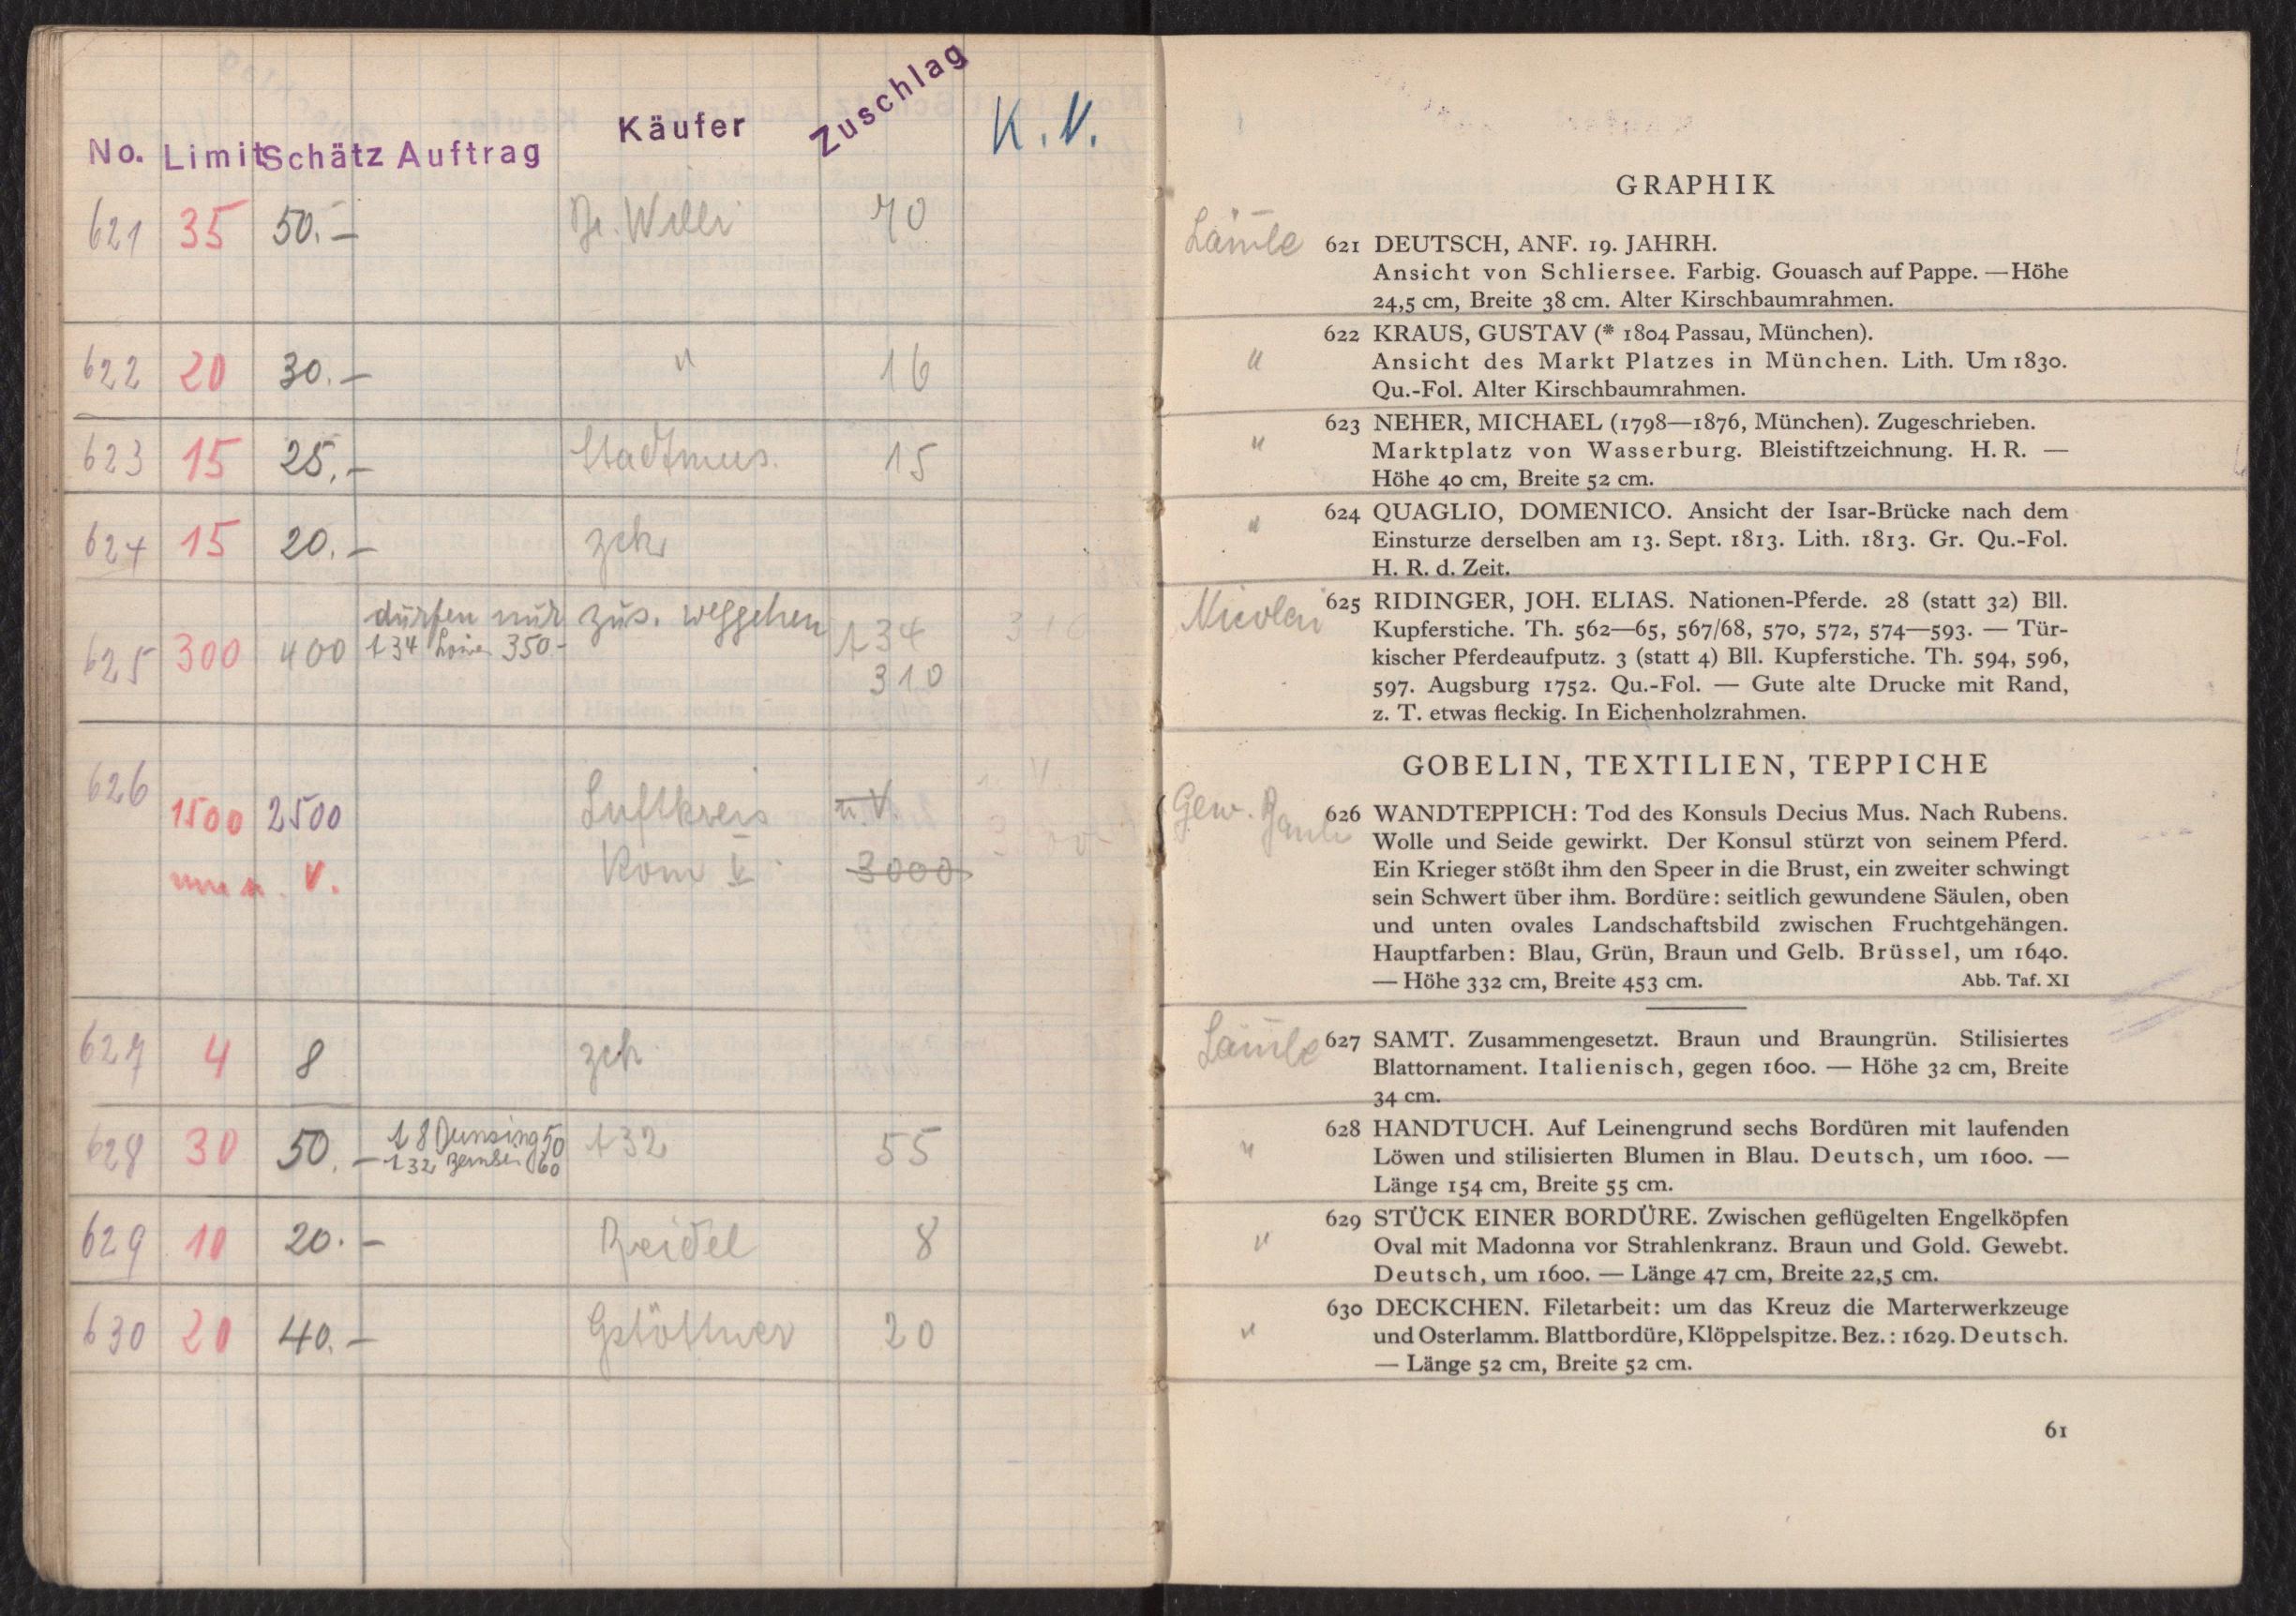 No. Limit Schätz Auftrag Käufer Zuschlag K. V.
621 35 50.— Dr. Willi 70
622 20 30.— " 16
623 15 25.— Stadtmus. 15
624 15 20.— zck.
dürfen nur zus. weggehen
625 300 400 134 350.— 134
310
626 1500 2500 Luftkreis u. V.
Kom V 3000
u. V.
627 4 8 zck.
628 30 50.— 18 Dunsing 50 132 55
132 60
629 10 20.— Zeidel 8
630 20 40.— Gstöttner 20
GRAPHIK
Lämle 621 DEUTSCH, ANF. 19. JAHRH.
Ansicht von Schliersee. Farbig. Gouasch auf Pappe. — Höhe
24,5 cm, Breite 38 cm. Alter Kirschbaumrahmen.
" 622 KRAUS, GUSTAV (* 1804 Passau, München).
Ansicht des Markt Platzes in München. Lith. Um 1830.
Qu.-Fol. Alter Kirschbaumrahmen.
" 623 NEHER, MICHAEL (1798—1876, München). Zugeschrieben.
Marktplatz von Wasserburg. Bleistiftzeichnung. H. R. —
Höhe 40 cm, Breite 52 cm.
" 624 QUAGLIO, DOMENICO. Ansicht der Isar-Brücke nach dem
Einsturze derselben am 13. Sept. 1813. Lith. 1813. Gr. Qu.-Fol.
H. R. d. Zeit.
Nicolai 625 RIDINGER, JOH. ELIAS. Nationen-Pferde. 28 (statt 32) Bll.
Kupferstiche. Th. 562—65, 567/68, 570, 572, 574—593. — Tür-
kischer Pferdeaufputz. 3 (statt 4) Bll. Kupferstiche. Th. 594, 596,
597. Augsburg 1752. Qu.-Fol. — Gute alte Drucke mit Rand,
z. T. etwas fleckig. In Eichenholzrahmen.
GOBELIN, TEXTILIEN, TEPPICHE
Gew. 626 WANDTEPPICH: Tod des Konsuls Decius Mus. Nach Rubens.
Wolle und Seide gewirkt. Der Konsul stürzt von seinem Pferd.
Ein Krieger stößt ihm den Speer in die Brust, ein zweiter schwingt
sein Schwert über ihm. Bordüre: seitlich gewundene Säulen, oben
und unten ovales Landschaftsbild zwischen Fruchtgehängen.
Hauptfarben: Blau, Grün, Braun und Gelb. Brüssel, um 1640.
— Höhe 332 cm, Breite 453 cm. Abb. Taf. XI
Lämle 627 SAMT. Zusammengesetzt. Braun und Braungrün. Stilisiertes
Blattornament. Italienisch, gegen 1600. — Höhe 32 cm, Breite
34 cm.
" 628 HANDTUCH. Auf Leinengrund sechs Bordüren mit laufenden
Löwen und stilisierten Blumen in Blau. Deutsch, um 1600. —
Länge 154 cm, Breite 55 cm.
" 629 STÜCK EINER BORDÜRE. Zwischen geflügelten Engelköpfen
Oval mit Madonna vor Strahlenkranz. Braun und Gold. Gewebt.
Deutsch, um 1600. — Länge 47 cm, Breite 22,5 cm.
" 630 DECKCHEN. Filetarbeit: um das Kreuz die Marterwerkzeuge
und Osterlamm. Blattbordüre, Klöppelspitze. Bez.: 1629. Deutsch.
— Länge 52 cm, Breite 52 cm.
61